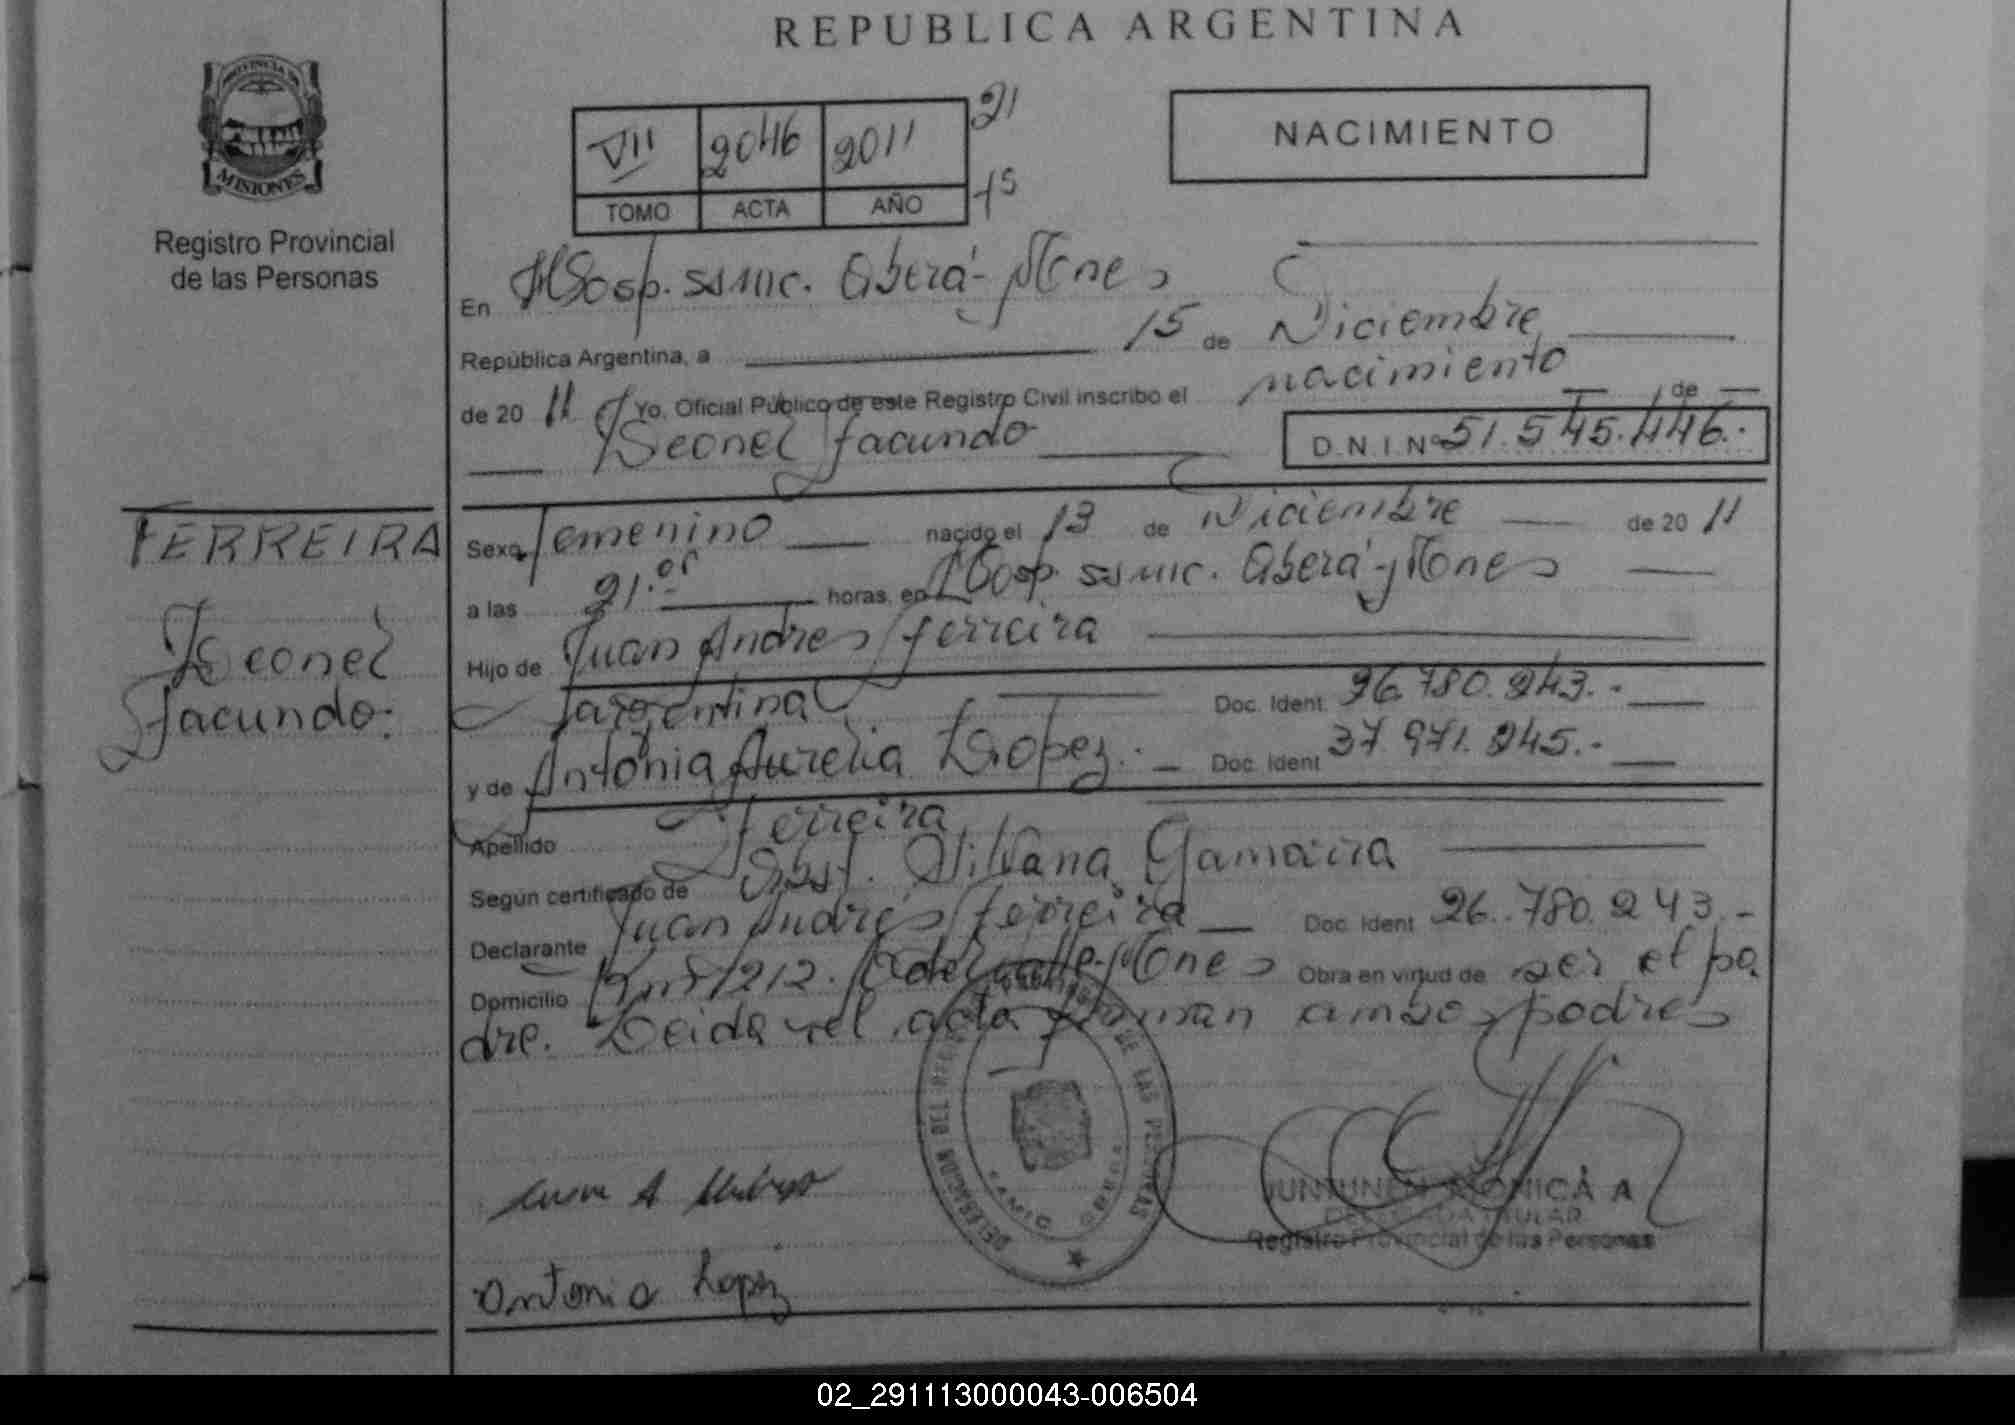 REPUBLICA ARGENTINA
PROVINCIA DE
MISIONES
Registro Provincial
de las Personas
VII 2046 2011 21
TOMO ACTA AÑO 15
NACIMIENTO
En Hosp. SAMIC. Oberá-Mnes
República Argentina, a 15 de Diciembre
de 2011 Yo, Oficial Público de este Registro Civil inscribo el nacimiento de
Leonel Facundo D.N.I. Nº 51.545.446.-
FERREIRA
Leonel
Facundo.
Sexo Femenino nacido el 13 de Diciembre de 2011
a las 21.05 horas, en Hosp. SAMIC. Oberá-Mnes
Hijo de Juan Andres Ferreira
argentina Doc. Ident. 26.780.243.-
y de Antonia Aurelia Lopez. Doc. Ident 37.971.245.-
Apellido Ferreira
Según certificado de Obst. Silvana
Declarante Juan Andrés Ferreira Doc. Ident 26.780.243.-
Domicilio Obra en virtud de ser el pa
dre. Leida el acta firman ambos padres
DELEGACION DEL REGISTRO DE LAS PERSONAS
SAMIC OBERA
JUNTUNEN MONICA A
DELEGADA TITULAR
Registro Provincial de las Personas
Antonia Lopez
02_291113000043-006504